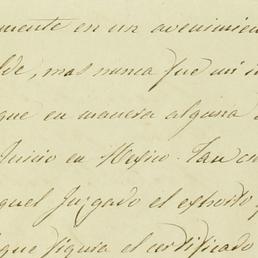 mente en un avenimien
lde, mas nunca fué mi in
que en manera alguna
Juicio en Mexico. Tan
quel Juzgado el exhorto
que siguia el certificado